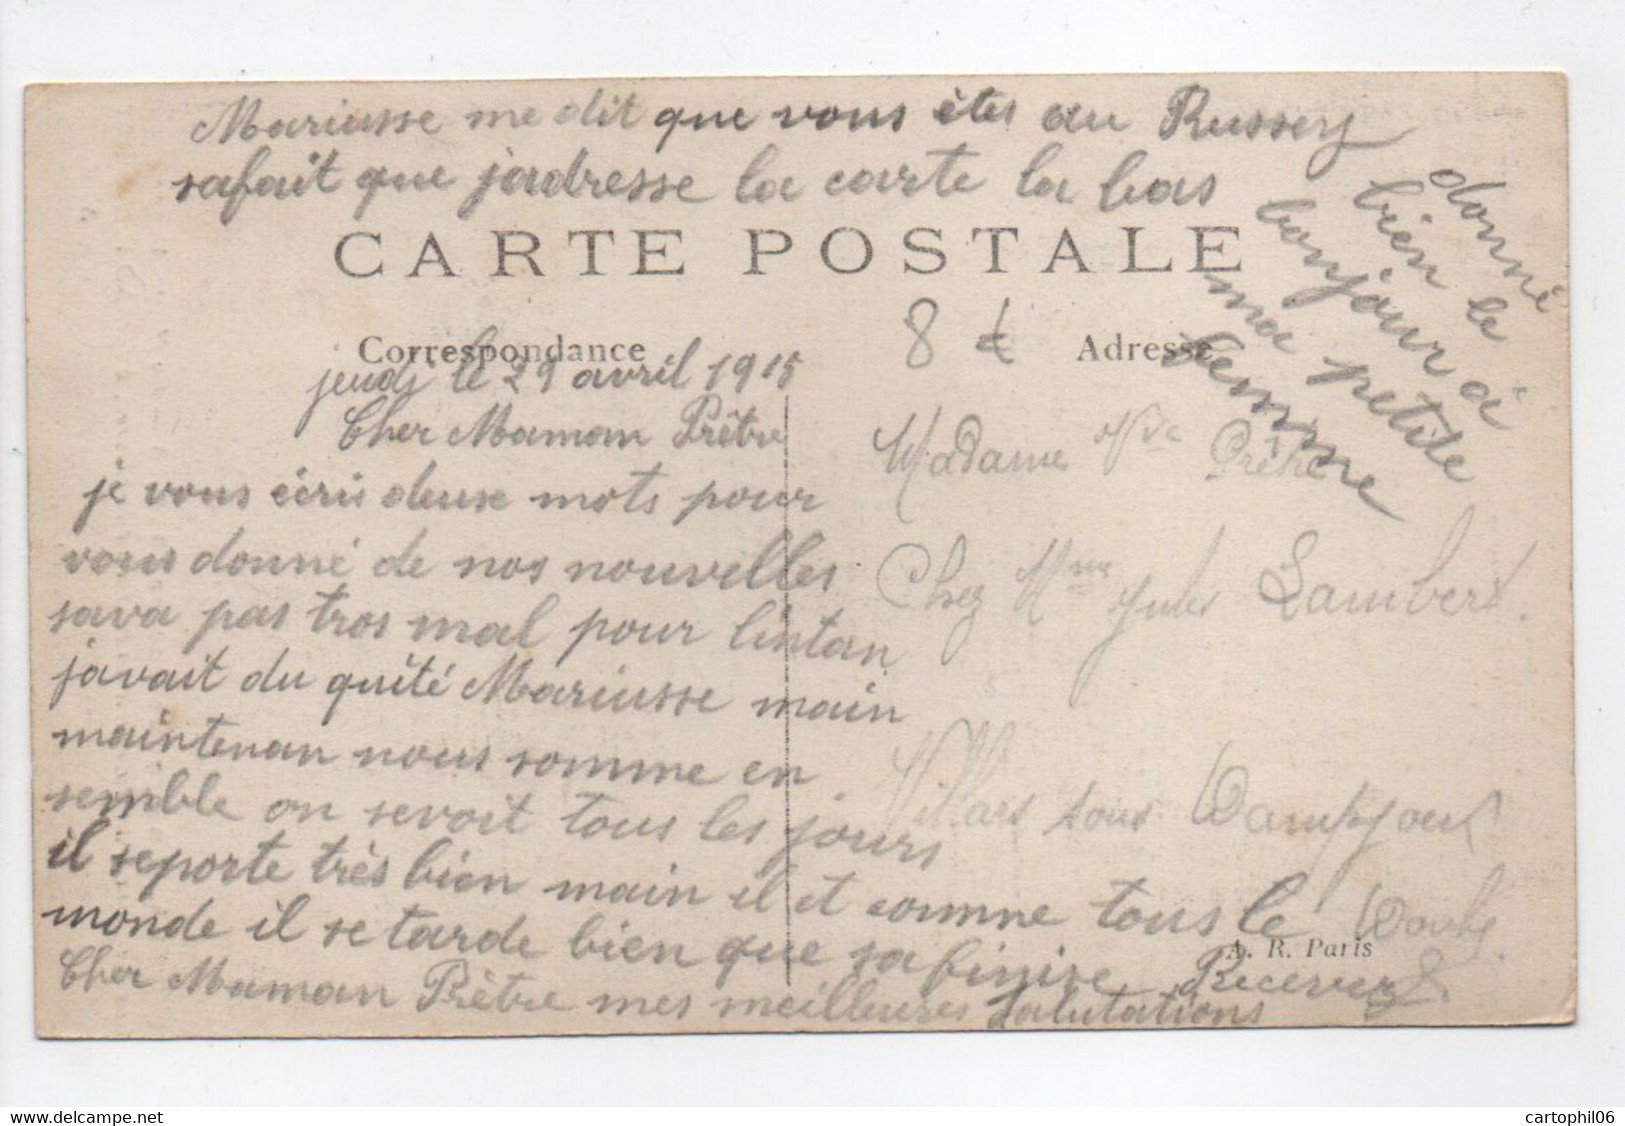 Mariusse me dit que vous êtes au Russey
safait que j'adresse la carte la bas
donné
bien le
bonjour à
ma petite
femme
CARTE POSTALE
8 €
Correspondance
Adresse
jeudi le 29 avril 1915
Cher Maman Prêtre
je vous écris deuse mots pour
vous donné de nos nouvelles
sava pas tros mal pour lintan
javait du quité Mariusse main
maintenan nous somme en
semble on sevoit tous les jours
il seporte très bien main il et comme tous le
monde il se tarde bien que sa finire Recever
Cher Maman Prêtre mes meilleures salutations
Madame Vve Prêtre
Chez Mme Jules Lambert.
Villars sous Dampjoux
Doubs.
A. R. Paris
www.delcampe.net
cartophil06